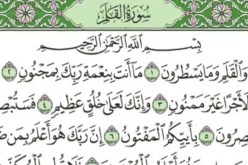 سُورَةُ القَلَمِ
بِسْمِ اللَّهِ الرَّحْمَٰنِ الرَّحِيمِ
وَالْقَلَمِ وَمَا يَسْطُرُونَ ١ مَا أَنتَ بِنِعْمَةِ رَبِّكَ بِمَجْنُونٍ ٢
جْرًا غَيْرَ مَمْنُونٍ ٣ وَإِنَّكَ لَعَلَىٰ خُلُقٍ عَظِيمٍ ٤ فَسَتُبْصِ
صِرُونَ ٥ بِأَييِّكُمُ الْمَفْتُونُ ٦ إِنَّ رَبَّكَ هُوَ أَعْلَمُ بِمَن ضَ